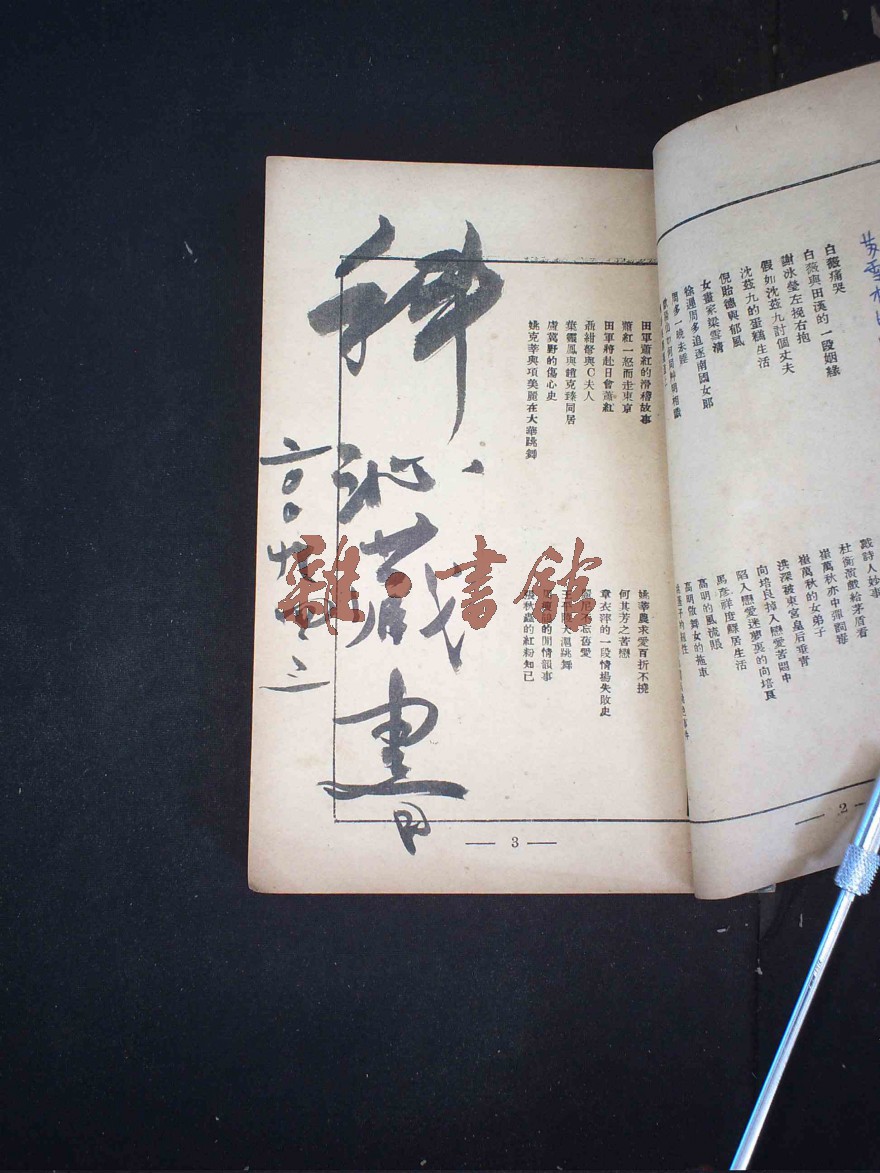 白薇痛哭
白薇與田漢的一段姻緣
謝冰瑩左挽右抱
假如沈茲九討個丈夫
沈茲九的蛋糕生活
倪貽德與郁風
女畫家梁雪清
徐遲周多追逐南國女郎
周多一曉未睡
戴詩人妙事
杜衡演戲給茅盾看
崔萬秋亦中彈聞毒
崔萬秋的女弟子
洪深被東宮皇后垂青
向培良掉入戀愛苦悶中
陷入戀愛迷夢裏的向培良
馬彥祥度縣居生活
高明的風流賬
高明做舞女的拖車
— 2 —
田軍蕭紅的滑稽故事
蕭紅一怒而走東京
田軍將赴日會蕭紅
聶紺弩與C夫人
葉靈鳳與趙克臻同居
盧冀野的傷心史
姚克莘與項美麗在大華跳舞
姚莘農求愛百折不撓
何其芳之苦戀
章衣萍的一段情場失敗史
的閒情韻事
張秋蟲的紅粉知己
— 3 —
藏書
雜·書館